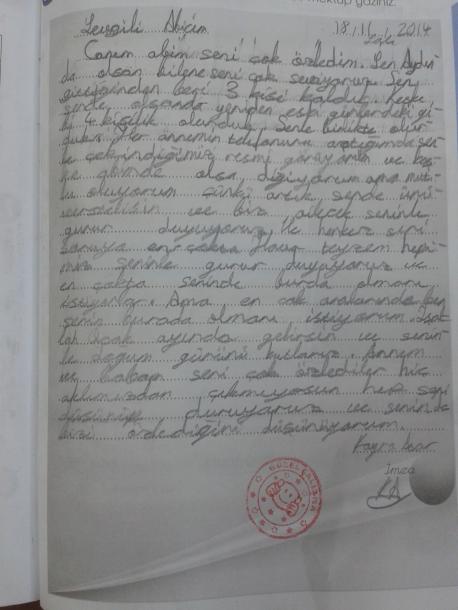 mektup yazınız.
Sevgili Abiçim
18.11.2014
Salı
Canım abim seni çok özledim. Sen Aydın-
da olsan bilene seni çok seviyoruz. Sen
gittiğinden beri 3 kişi kaldık. Keşke
sende olsanda yeniden eski günlerdeki gi-
bi 4 kişilik olurduk. Senle birlikte olur-
duk. Her annemin telefonunu aradığımda sen-
le çekindiğimiz resmi görüyorum ve
olsa, diyiyorum ama mut-
lu oluyorum çünkü artık, sende üni-
versitelisin ve biz ailecek seninle
gurur duyuyoruz,
teyzem hepi-
miz seninle gurur duyuyoruz ve
en çokta seninde burda olmanı
istiyoruz. Ama, en çok aralarında ben
senin burada olmanı istiyorum.
ocak ayında gelirsin ve senin-
le doğum gününü kutlarız. Annem
ve babam seni çok özlediler hiç
aklımızdan çıkmıyorsun hep seni
düşünüp duruyoruz ve seninde
bizi özlediğini düşünüyorum.
Kayra
İmza
GÜZELÇALIŞMA